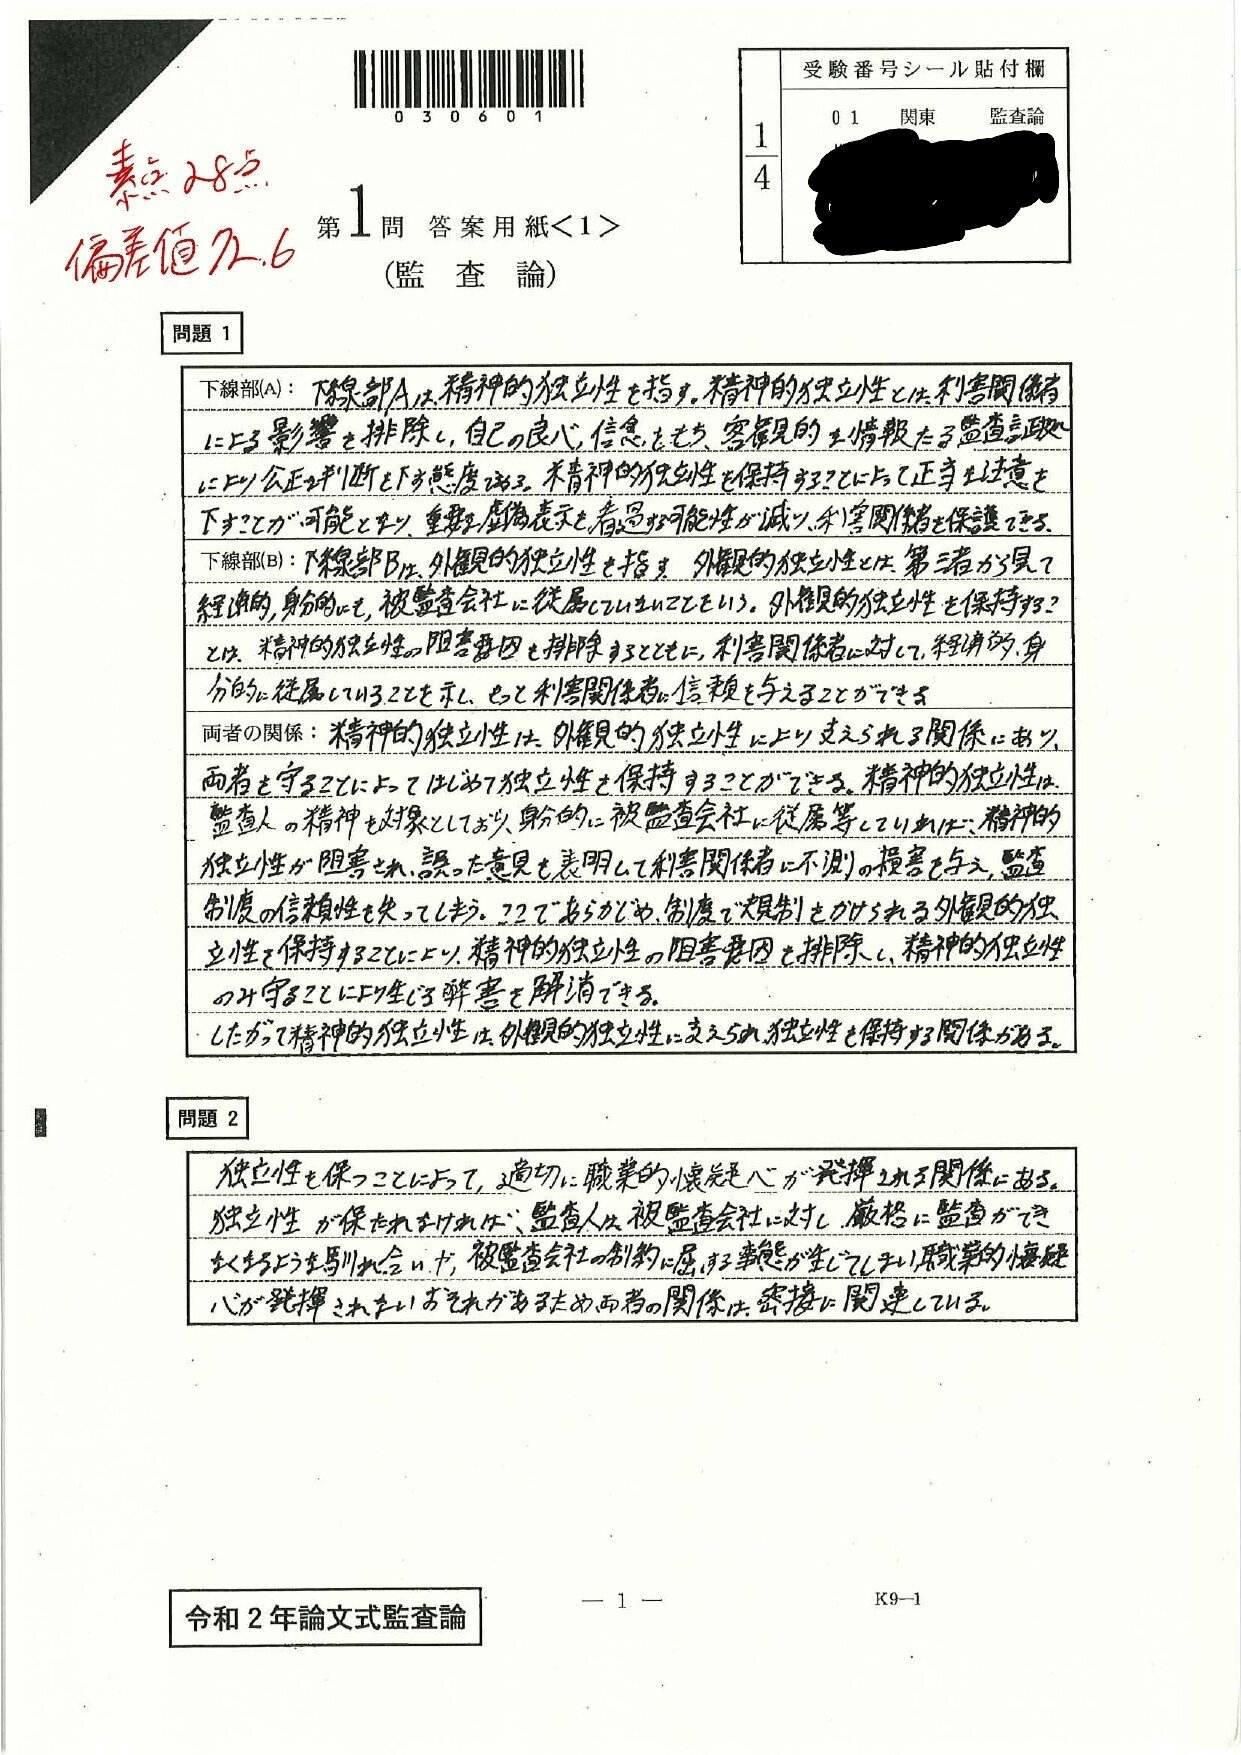 030601
受験番号シール貼付欄
1/4
01 関東 監査論
素点 28点
偏差値 72.6
第1問 答案用紙<1>
(監査論)
問題 1
下線部(A): 下線部Aは、精神的独立性を指す。精神的独立性とは、利害関係者
による影響を排除し、自己の良心、信念をもち、客観的な情報たる監査証拠
により公正な判断を下す態度である。精神的独立性を保持することによって正当な注意を
下すことが可能となり、重要な虚偽表示を看過する可能性が減り、利害関係者を保護できる。
下線部(B): 下線部Bは、外観的独立性を指す 外観的独立性とは、第三者から見て
経済的、身分的にも、被監査会社に従属していないことをいう。外観的独立性を保持するこ
とは、精神的独立性の阻害要因を排除するとともに、利害関係者に対して、経済的、身
分的に従属していることを示し、もって利害関係者に信頼を与えることができる
両者の関係: 精神的独立性は、外観的独立性により支えられる関係にあり、
両者を守ることによってはじめて独立性を保持することができる。精神的独立性は、
監査人の精神を対象としており、身分的に被監査会社に従属等していれば、精神的
独立性が阻害され、誤った意見を表明して利害関係者に不測の損害を与え、監査
制度の信頼性を失ってしまう。ここであらかじめ、制度で規制をかけられる外観的独
立性を保持することにより、精神的独立性の阻害要因を排除し、精神的独立性
のみ守ることにより生じる弊害を解消できる。
したがって精神的独立性は、外観的独立性に支えられ、独立性を保持する関係がある。
問題 2
独立性を保つことによって、適切に職業的懐疑心が発揮される関係にある。
独立性が保たれなければ、監査人は、被監査会社に対し、厳格に監査ができ
なくなるような馴れ合いや、被監査会社の制約に屈する事態が生じてしまい、職業的懐疑
心が発揮されないおそれがあるため両者の関係は、密接に関連している。
令和2年論文式監査論
— 1 —
K9—1